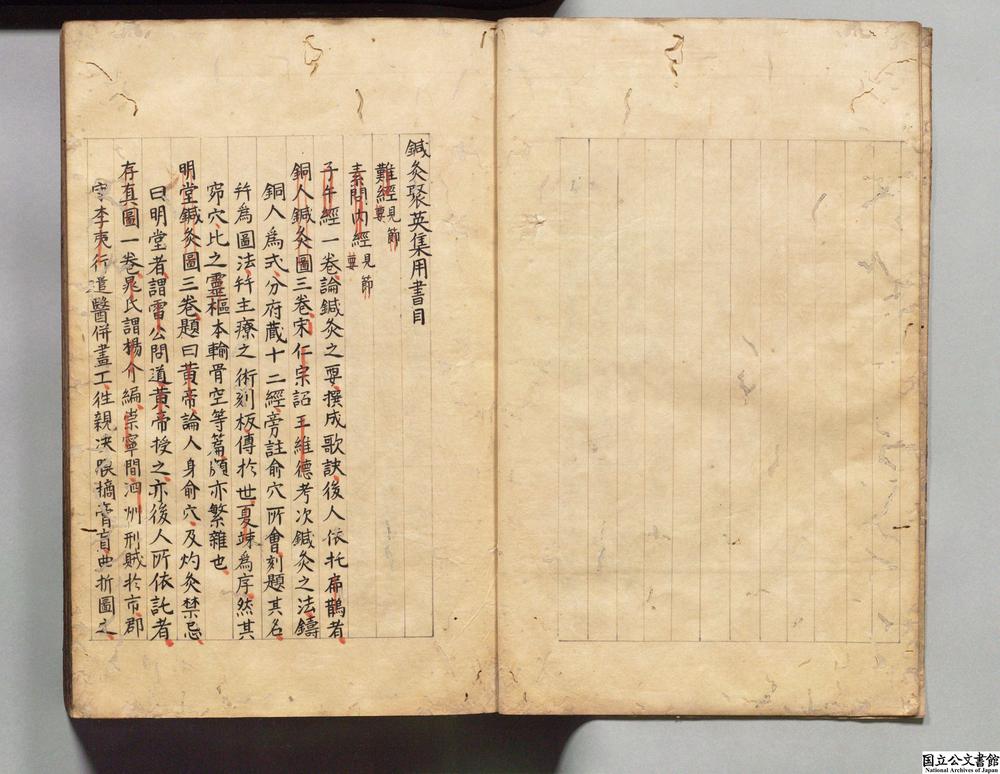 鍼灸聚英集用書目
難經見節要
素問内經見節要
子午經一卷論鍼灸之要撰成歌訣後人依托扁鵲者
銅人鍼灸圖三卷宋仁宗詔王維德考次鍼灸之法鑄
銅人為式分府蔵十二經旁註俞穴所會刻題其名
并為圖法并主療之術刻板傳於世夏竦為序然其
窌穴比之靈樞本輸骨空等篇頗亦繁雜也
明堂鍼灸圖三卷題曰黄帝論人身俞穴及灼灸禁忌
曰明堂者謂雷公問道黄帝授之亦後人所依託者
存真圖一卷晁氏謂楊介編崇寧間泗州刑賊於市郡
守李夷行遣醫併畫工往親决膜摘膏肓曲折圖之
国立公文書館
National Archives of Japan